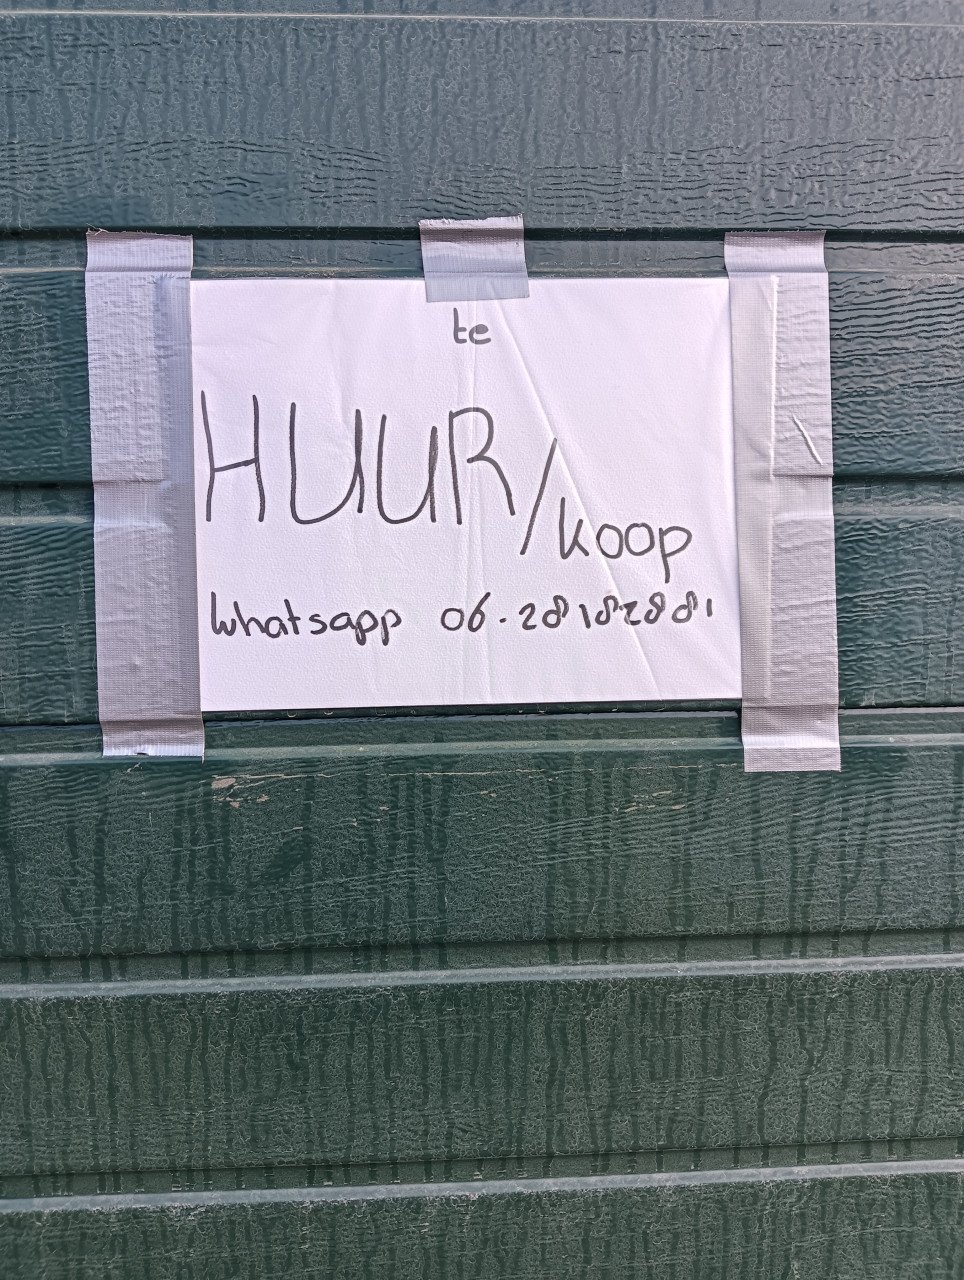 te
HUUR/koop
Whatsapp 06-28182881